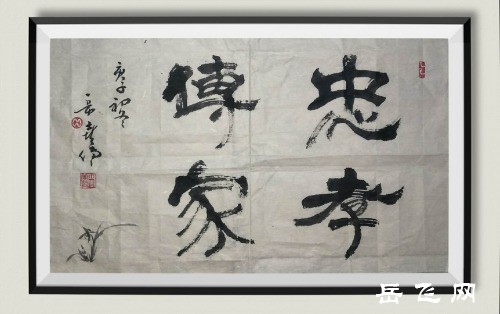 忠孝
傳家
庚子初冬
岳飞网